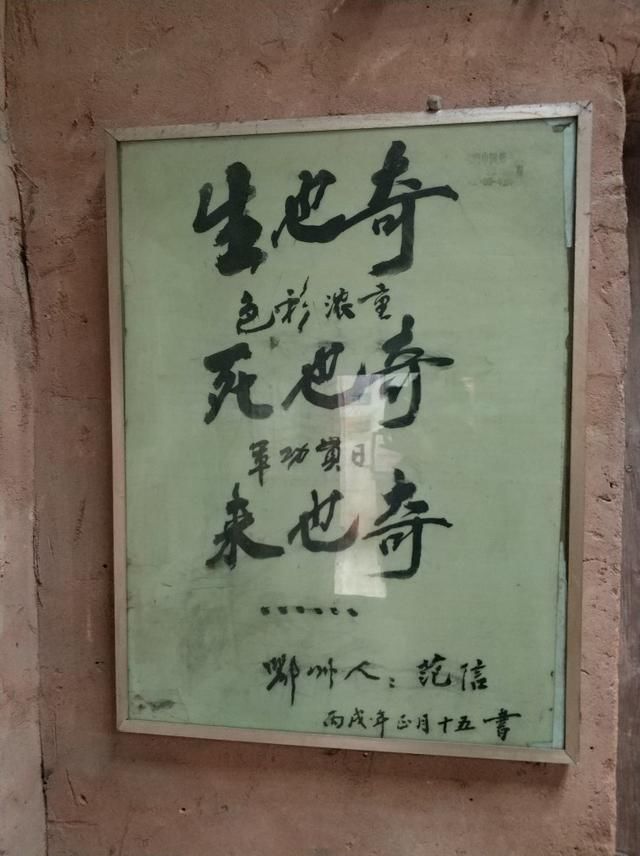 生也奇
色彩浓重
死也奇
军功贯日
来也奇
......
鄂州人：范信
丙戌年正月十五 書